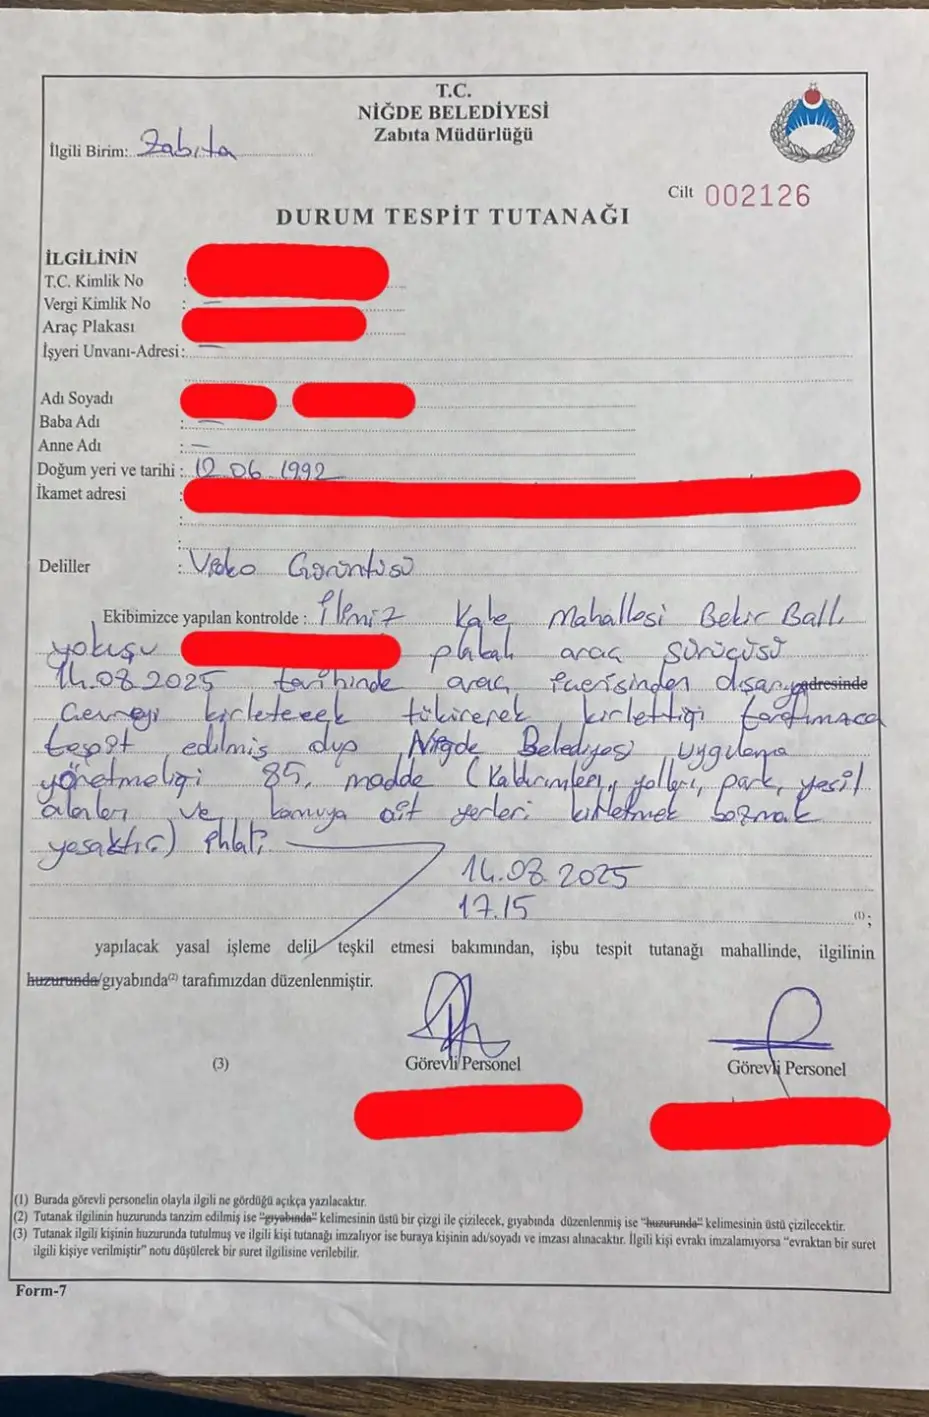 T.C.
NİĞDE BELEDİYESİ
Zabıta Müdürlüğü
İlgili Birim: Zabıta
Cilt 002126
DURUM TESPİT TUTANAĞI
İLGİLİNİN
T.C. Kimlik No :
Vergi Kimlik No : —
Araç Plakası
İşyeri Unvanı-Adresi: —
Adı Soyadı
Baba Adı : —
Anne Adı : —
Doğum yeri ve tarihi : 12.06.1992
İkamet adresi :
:
:
Deliller : Video Görüntüsü
Ekibimizce yapılan kontrolde : Kale Mahallesi Bekir Ballı
yokuşu plakalı araç sürücüsü
14.08.2025 tarihinde araç içerisinden dışarıya adresinde
Çevreyi kirleterek tükürerek kirlettiği tarafımızca
tespit edilmiş olup Niğde Belediyesi Uygulama
yönetmeliği 85. madde (Kaldırımları, yolları, park, yeşil
alanları ve kamuya ait yerleri kirletmek bozmak
yasaktır.) ihlali
14.08.2025
17.15
(1) ;
yapılacak yasal işleme delil teşkil etmesi bakımından, işbu tespit tutanağı mahallinde, ilgilinin
huzurunda/gıyabında(2) tarafımızdan düzenlenmiştir.
(3) Görevli Personel Görevli Personel
(1) Burada görevli personelin olayla ilgili ne gördüğü açıkça yazılacaktır.
(2) Tutanak ilgilinin huzurunda tanzim edilmiş ise "gıyabında" kelimesinin üstü bir çizgi ile çizilecek, gıyabında düzenlenmiş ise "huzurunda" kelimesinin üstü çizilecektir.
(3) Tutanak ilgili kişinin huzurunda tutulmuş ve ilgili kişi tutanağı imzalıyor ise buraya kişinin adı/soyadı ve imzası alınacaktır. İlgili kişi evrakı imzalamıyorsa "evraktan bir suret
ilgili kişiye verilmiştir" notu düşülerek bir suret ilgilisine verilebilir.
Form-7